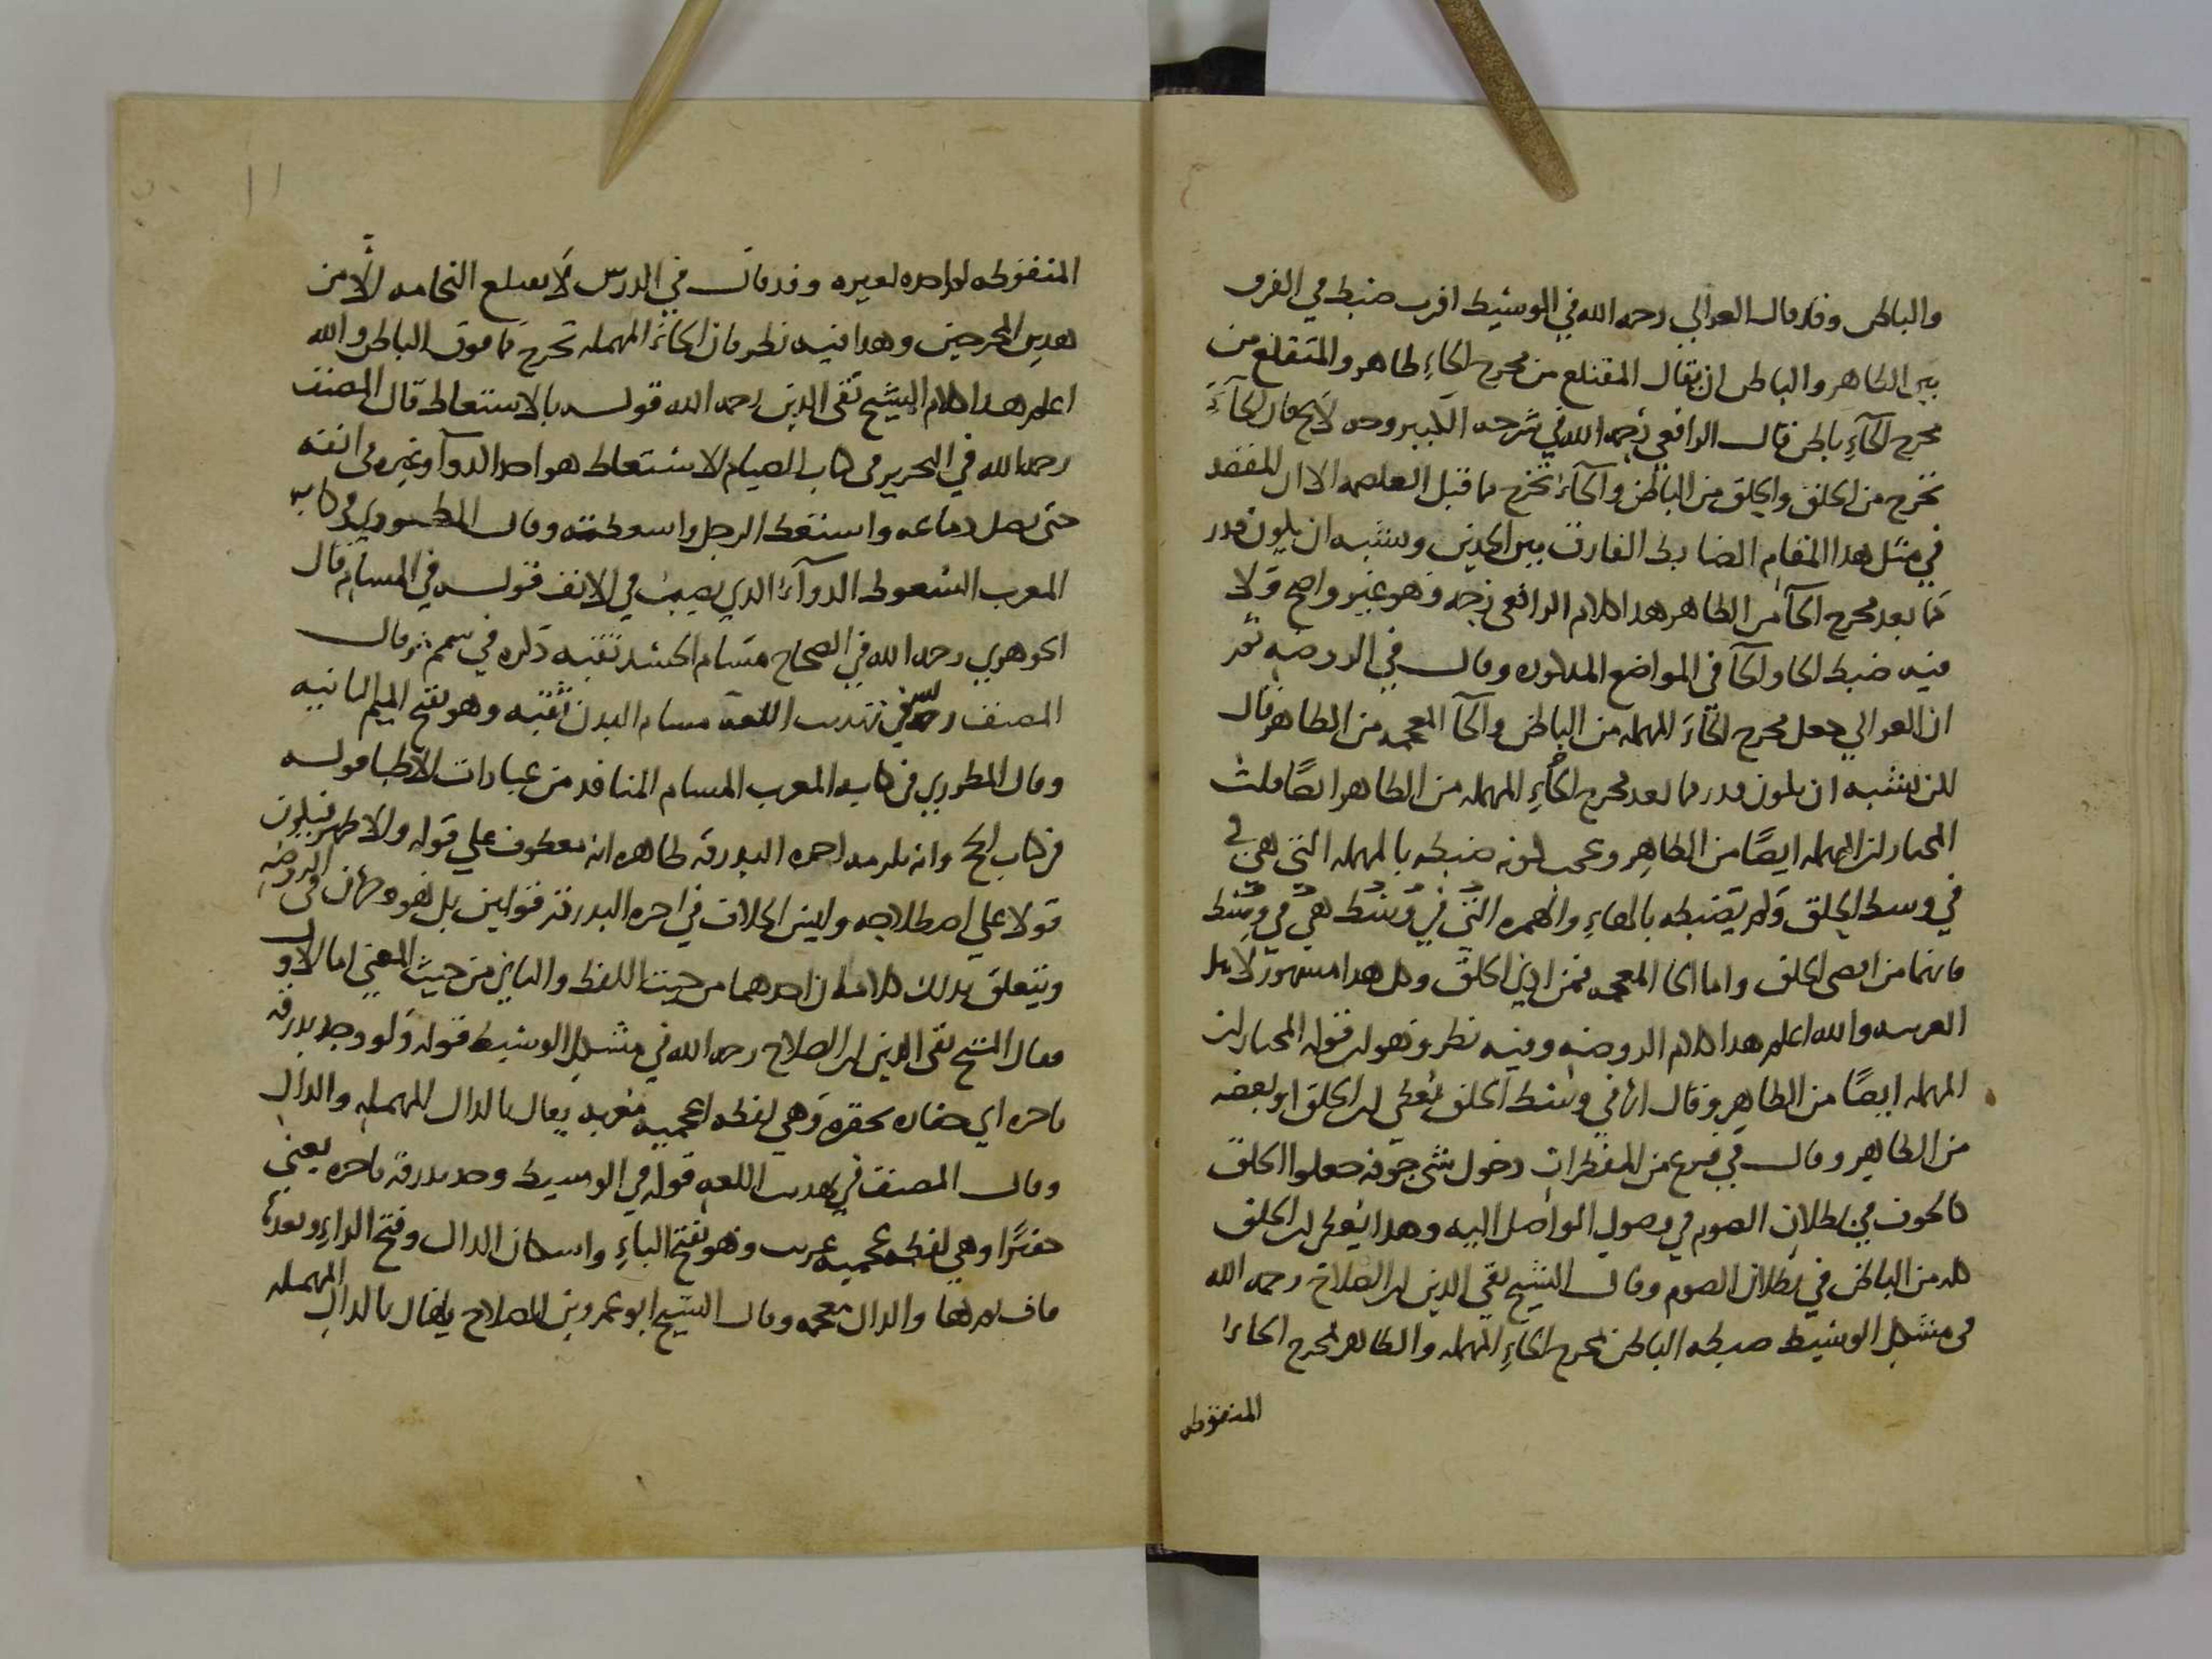 والباطن وقد قال الغزالي رحمه الله في الوسيط اقرب ضبط في الفرق
بين الظاهر والباطن ان يقال المقتلع من مخرج الخاء ظاهر والمتقلع من
مخرج الحآءِ باطن قال الرافعي رحمه الله في شرحه الكبير وجه لايح فان الحآء
تخرج من الحلق والحلق من الباطن والخآء تخرج مما قبل الغلصمة الا ان المقصد
في مثل هذا المقام الضابط الفارق بين الحدين ويشبه ان يكون قدر
مما بعد مخرج الحآ من الظاهر هذا كلام الرافعي رحمه وهو غير واضح ولا
فيه ضبط الحا والخآ في المواضع المذكوره وقال في الروضه
ان الغزالي جعل مخرج الحآء المهمله من الباطن والخآ المعجمه من الظاهر قال
لكن يشبه ان يكون قدر مما بعد مخرج الحآءِ المهمله من الظاهر ايضًا قلت
المختار ان المهمله ايضًا من الظاهر وعجب كونه ضبطه بالمهمله التي هي في
في وسط الحلق ولم يضبطه بالهاءِ والهمزه التي في وسط هي في وسط
فانهما من اقصى الحلق واما الخا المعجمه فمن ادنى الحلق وكل هذا مشهور لاهل
العربيه والله اعلم هذا كلام الروضه وفيه نظر وهو ان قوله المختار ان
المهمله ايضًا من الظاهر وقال انها في وسط الحلق يُعطي ان الحلق او بعضه
من الظاهر وقال في فرع من المفطرات دخول شي جوفه جعلوا الحلق
كالجوف في بطلان الصوم في وصول الواصل اليه وهذا يُعطي ان الحلق
كله من الباطن في بطلان الصوم وقال الشيخ تقي الدين ابن الصلاح رحمه الله
في مشكل الوسيط ضبطه الباطن بمخرج الحاءِ المهمله والظاهر بمخرج الخاء
المنقوطه
المنقوطه لم اجده لغيره وقد قال في الدرس لا يبتلع النخامه الا من
هذين المخرجين وهذا فيه نظر فان الحآء المهمله تخرج مما فوق الباطن والله
اعلم هذا كلام الشيخ تقي الدين رحمه الله قوله بالاستعاط قال المصنف
رحمه الله في التحرير في كتاب الصيام الاستعاط هو اخذ الدوآ وغيره في انفه
حتى يصل دماغه واستعط الرجل واسعطته وقال المطرزي في كتابه
المغرب السعوط الدوآء الذي يصب في الانف قوله في المسام قال
الجوهري رحمه الله في الصحاح مسام الجسد ثقبه ذكره في سمم ثم قال
المصنف رحمه الله في تهذيب اللغه مسام البدن ثقبه وهو بفتح الميم الثانيه
وقال المطرزي في كتابه المغرب المسام المنافذ من عبارات الاطبا قوله
في كتاب الحج وانه يلزمه اجره البذرقه ظاهره انه معطوف على قوله والاظهر فيكون
قولا على اصطلاحه وليس الخلاف في اجره البذرقه قولين بل هو وجهان في الروضه
ويتعلق بذلك كلامان احدهما من حيث اللفظ والثاني من حيث المعني اما الاول
فقال الشيخ تقي الدين ابن الصلاح رحمه الله في مشكل الوسيط قوله ولو وجد بذرقه
باجره اي خفاره بخفره وهي لفظه اعجميه معربه يقال بالدال المهمله والذال
وقال المصنف في تهذيب اللغه قوله في الوسيط وجد بذرقه باجره يعني
خفيرًا وهي لفظه عجميه عربت وهو بفتح الباءِ واسكان الذال وفتح الراءِ وبعدها
قاف ثم ها والذال معجمه وقال الشيخ ابو عمرو بن الصلاح يقال بالدال المهمله